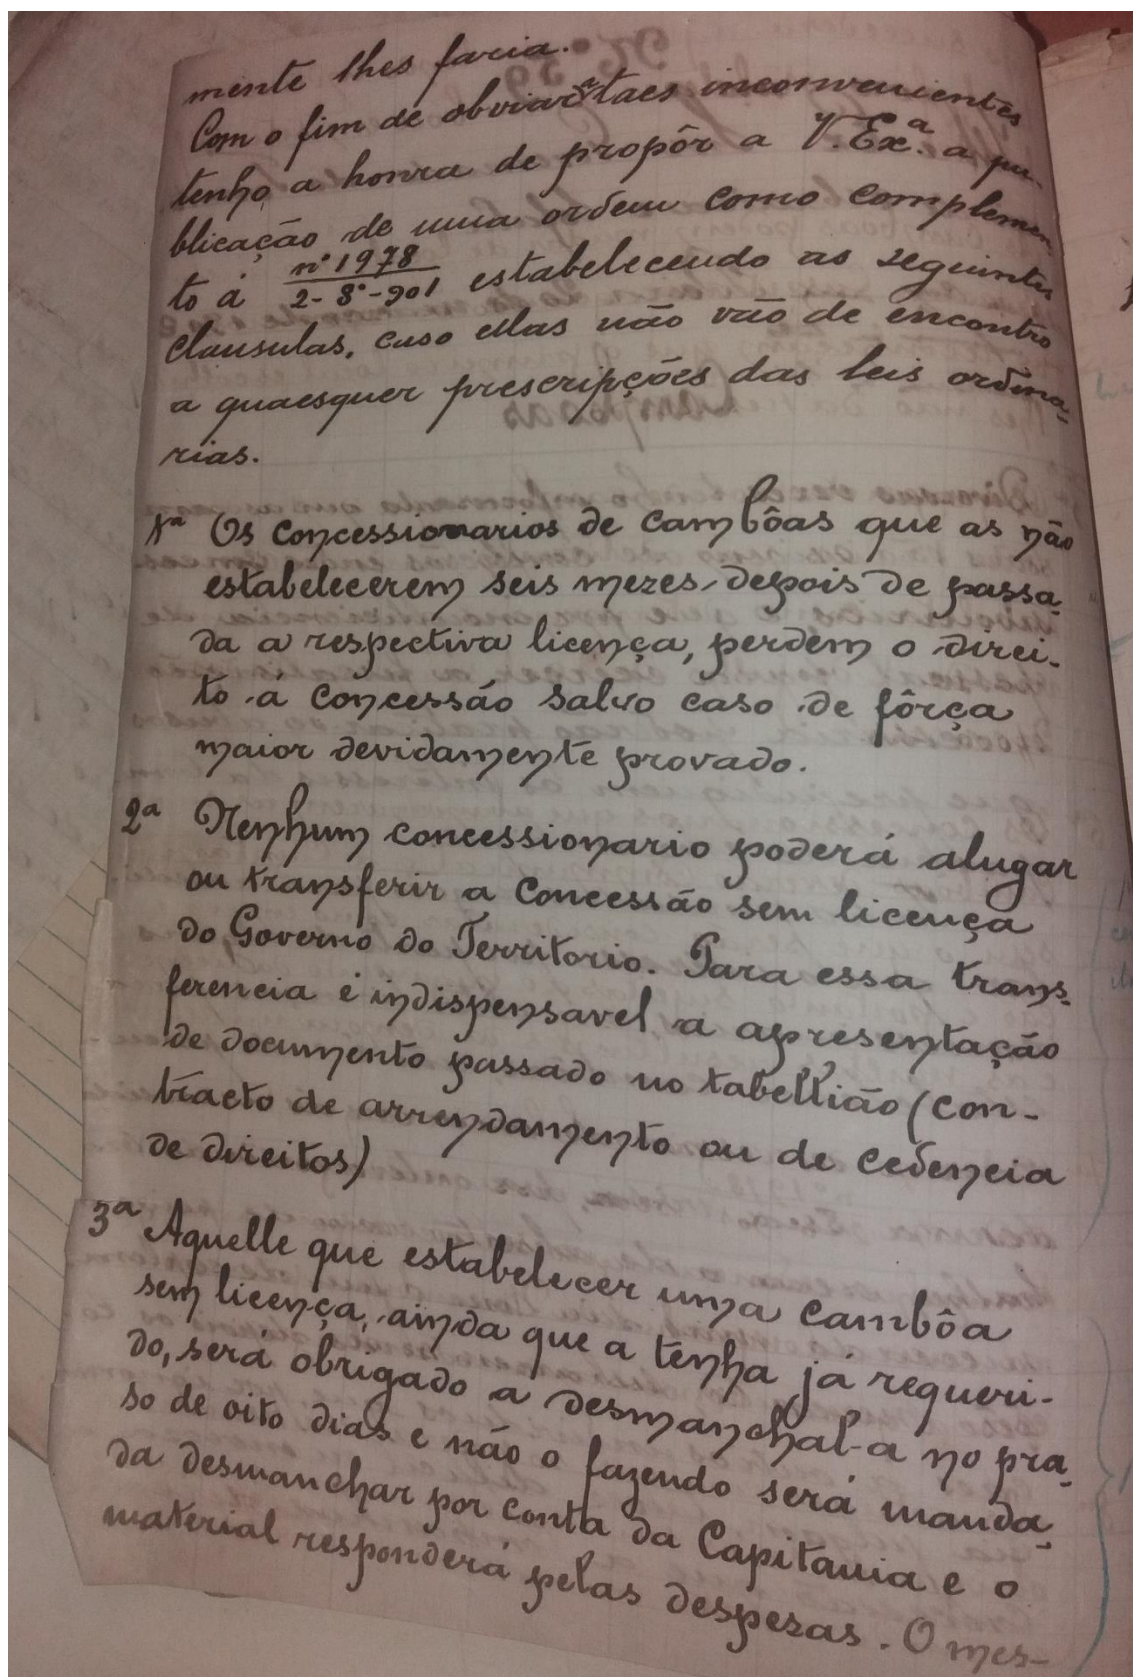 mente lhes faria.
Com o fim de obviar a taes inconvenientes
tenho a honra de propôr a V. Ex.ª a pu-
blicação de uma ordem como complemen-
to á nº 1978 / 2-8º-901 estabelecendo as seguintes
clausulas, caso ellas não vão de encontro
a quaesquer prescripções das leis ordina-
rias.
1ª Os concessionarios de cambôas que as não
estabelecerem seis mezes depois de passa-
da a respectiva licença, perdem o direi-
to á concessão salvo caso de fôrça
maior devidamente provado.
2ª Nenhum concessionario poderá alugar
ou transferir a concessão sem licença
do Governo do Territorio. Para essa trans-
ferencia é indispensavel a apresentação
de documento passado no tabellião (con-
tracto de arrendamento ou de cedencia
de direitos)
3ª Aquelle que estabelecer uma cambôa
sem licença, ainda que a tenha já requeri-
do, será obrigado a desmanchal-a no pra-
so de oito dias e não o fazendo será manda-
da desmanchar por conta da Capitania e o
material responderá pelas despezas. O mes-